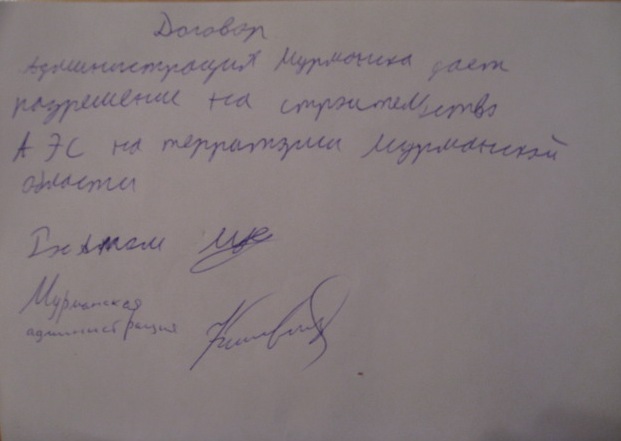 Договор
Администрация Мурманска дает
разрешение на строительство
АЭС на территории Мурманской
области
Атом
Мурманская
администрация